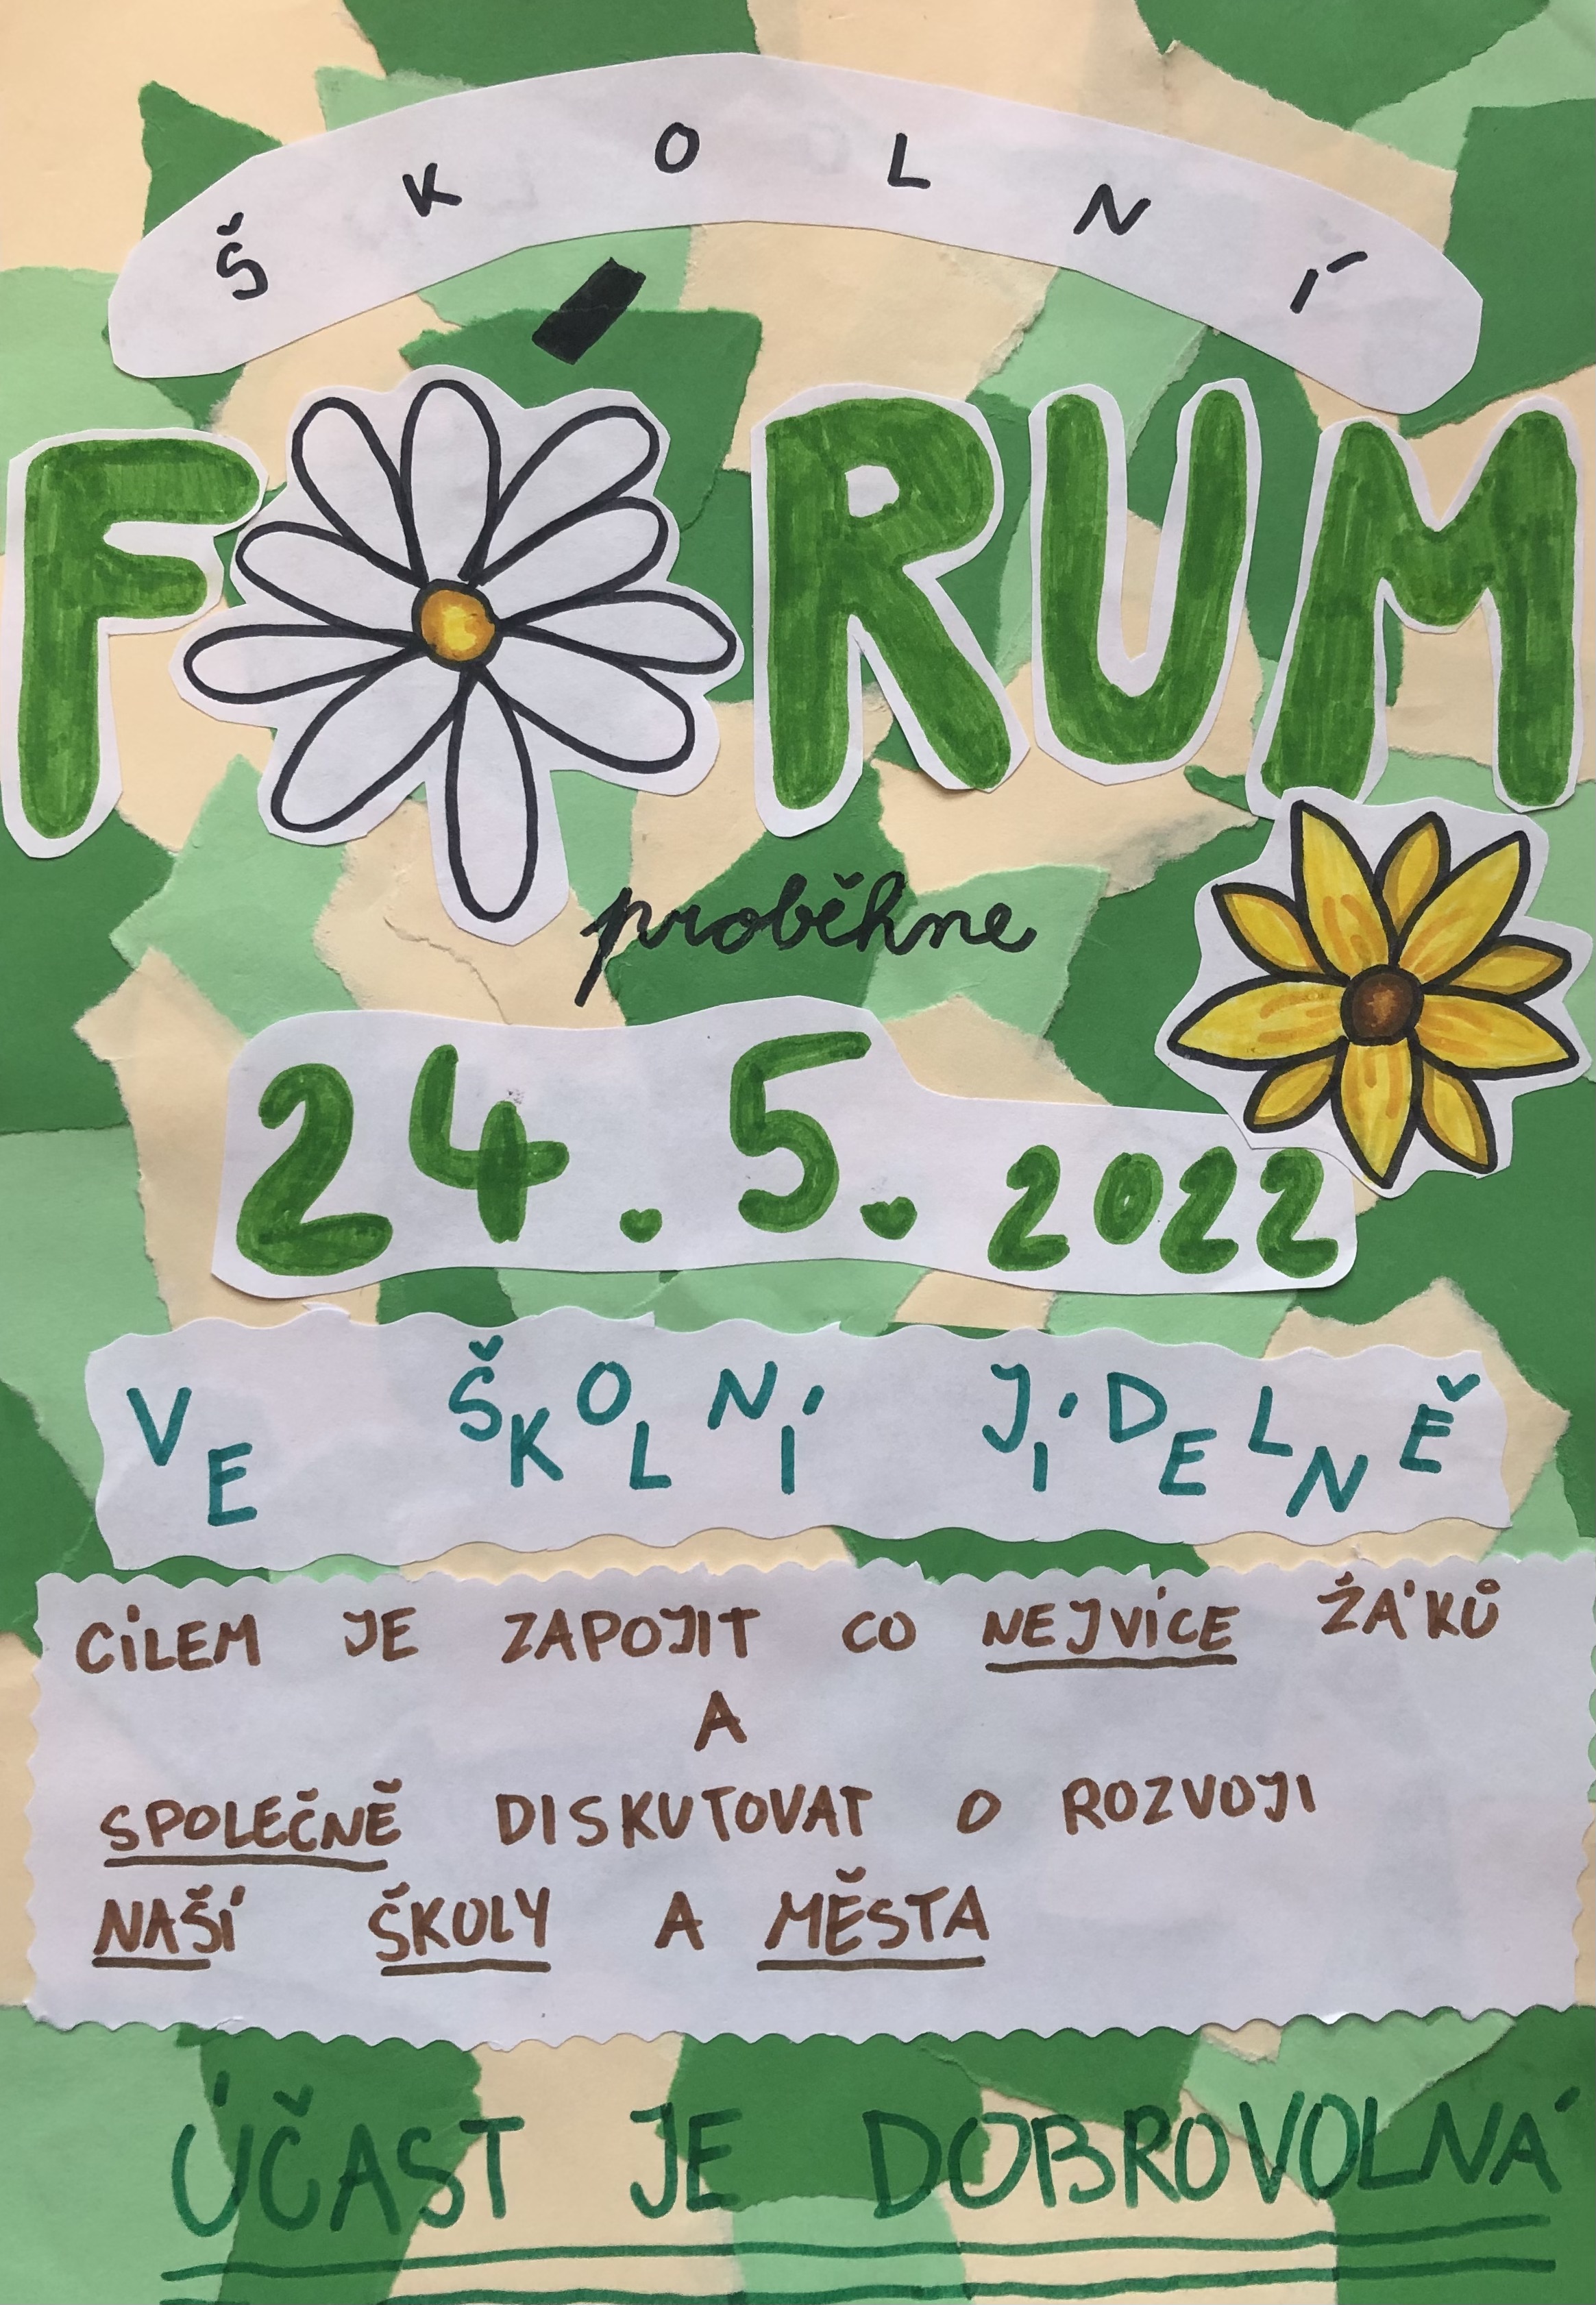 ŠKOLNÍ
FÓRUM
proběhne
24.5.2022
VE ŠKOLNÍ JÍDELNĚ
CÍLEM JE ZAPOJIT CO NEJVÍCE ŽÁKŮ
A
SPOLEČNĚ DISKUTOVAT O ROZVOJI
NAŠÍ ŠKOLY A MĚSTA
ÚČAST JE DOBROVOLNÁ